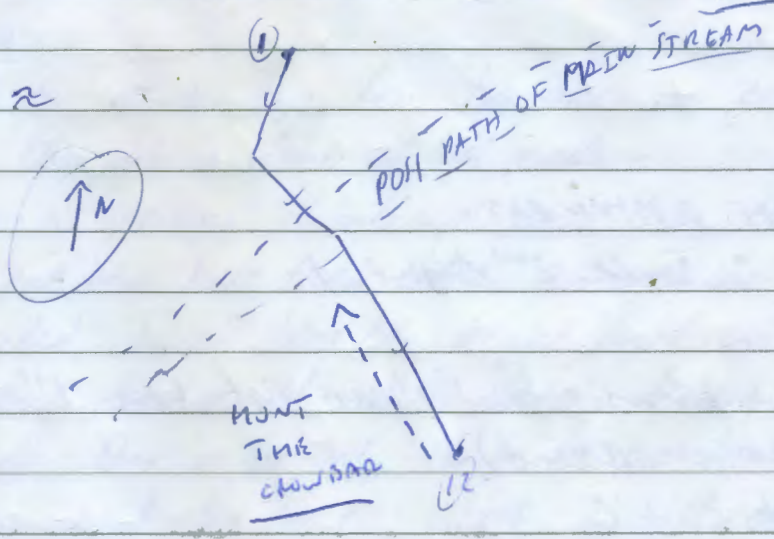 1
POSS PATH OF MAIN STREAM
N
HUNT
THE
CROWBAR
12